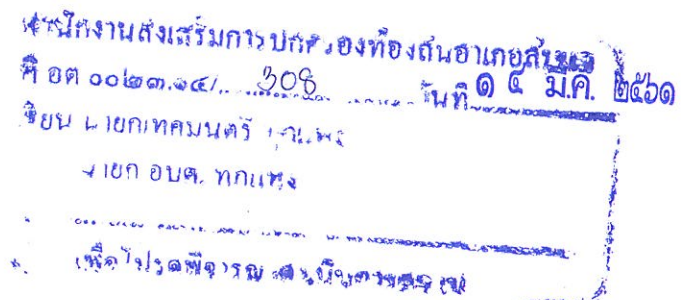 สำนักงานส่งเสริมการปกครองท้องถิ่นอำเภอ
ที่ อต ๐๐๒๓.๑๔/ 308 วันที่ ๑๔ มี.ค. ๒๕๖๑
เรียน นายกเทศมนตรี ทุกแห่ง
นายก อบต. ทุกแห่ง
เพื่อโปรดพิจารณาดำเนินการ